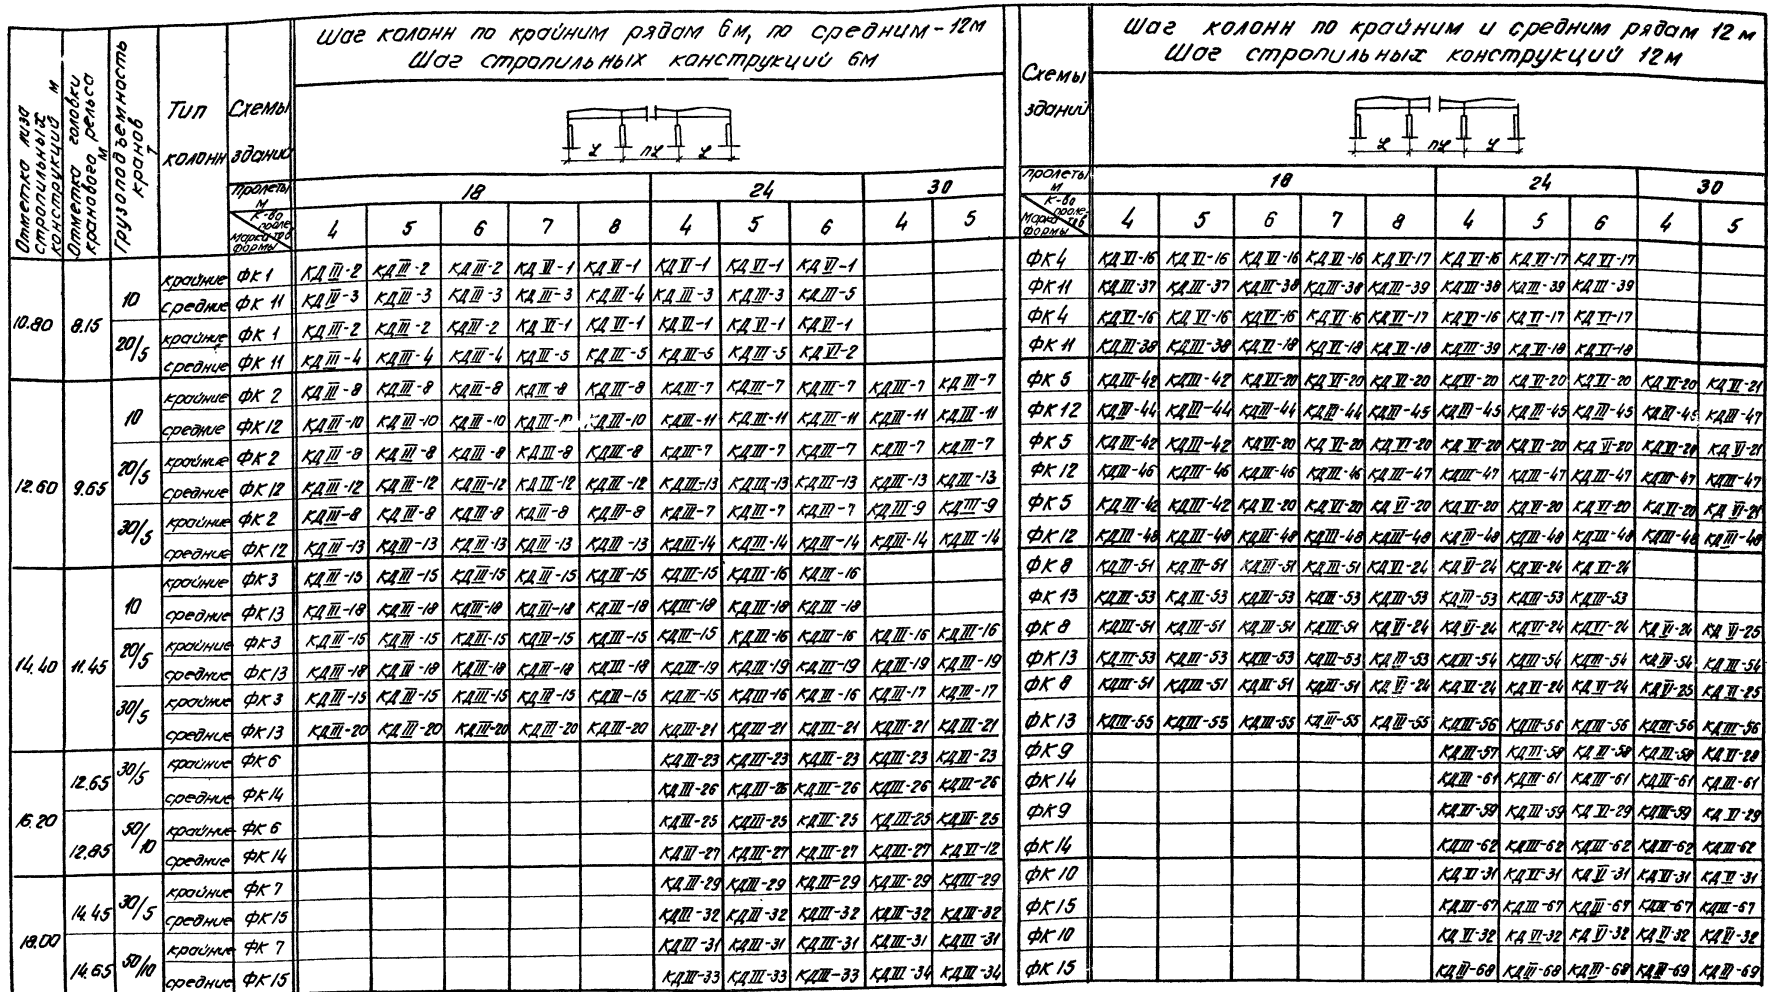 Отметка низа стропильных конструкций м
Отметка головки кранового рельса м
Грузоподъемность кранов т
Тип колонн
Схемы зданий
Шаг колонн по крайним рядам 6м, по средним - 12м
Шаг стропильных конструкций 6м
L nL L
Пролеты м 18 24 30
К-во проле-тов Марка формы 4 5 6 7 8 4 5 6 4 5
Схемы зданий
Шаг колонн по крайним и средним рядам 12 м
Шаг стропильных конструкций 12м
L nL L
Пролеты м 18 24 30
К-во проле-тов Марка формы 4 5 6 7 8 4 5 6 4 5
10.80 8.15
10 крайние ФК 1 КДIII-2 КДIII-2 КДIII-2 КДVI-1 КДVI-1 КДVI-1 КДVI-1 КДVI-1
средние ФК 11 КДIII-3 КДIII-3 КДIII-3 КДIII-4 КДIII-3 КДIII-3 КДIII-5
20/5 крайние ФК 1 КДIII-2 КДIII-2 КДIII-2 КДVI-1 КДVI-1 КДVI-1 КДVI-1 КДVI-1
средние ФК 11 КДIII-4 КДIII-4 КДIII-4 КДIII-5 КДIII-5 КДIII-5 КДIII-5 КДVI-2
12.60 9.65
10 крайние ФК 2 КДIII-8 КДIII-8 КДIII-8 КДIII-8 КДIII-8 КДIII-7 КДIII-7 КДIII-7 КДIII-7 КДIII-7
средние ФК 12 КДIII-10 КДIII-10 КДIII-10 КДIII-10 КДIII-11 КДIII-11 КДIII-11 КДIII-11 КДIII-11
20/5 крайние ФК 2 КДIII-8 КДIII-8 КДIII-8 КДIII-8 КДIII-8 КДIII-7 КДIII-7 КДIII-7 КДIII-7 КДIII-7
средние ФК 12 КДIII-12 КДIII-12 КДIII-12 КДIII-12 КДIII-12 КДIII-13 КДIII-13 КДIII-13 КДIII-13 КДIII-13
30/5 крайние ФК 2 КДIII-8 КДIII-8 КДIII-8 КДIII-8 КДIII-8 КДIII-7 КДIII-7 КДIII-7 КДIII-9 КДIII-9
средние ФК 12 КДIII-13 КДIII-13 КДIII-13 КДIII-13 КДIII-13 КДIII-14 КДIII-14 КДIII-14 КДIII-14 КДIII-14
14.40 11.45
10 крайние ФК 3 КДIII-15 КДIII-15 КДIII-15 КДIII-15 КДIII-15 КДIII-15 КДIII-16 КДIII-16
средние ФК 13 КДIII-18 КДIII-18 КДIII-18 КДIII-18 КДIII-18 КДIII-18 КДIII-18 КДIII-18
20/5 крайние ФК 3 КДIII-15 КДIII-15 КДIII-15 КДIII-15 КДIII-15 КДIII-15 КДIII-16 КДIII-16 КДIII-16 КДIII-16
средние ФК 13 КДIII-18 КДIII-18 КДIII-18 КДIII-18 КДIII-18 КДIII-19 КДIII-19 КДIII-19 КДIII-19 КДIII-19
30/5 крайние ФК 3 КДIII-15 КДIII-15 КДIII-15 КДIII-15 КДIII-15 КДIII-15 КДIII-16 КДIII-16 КДIII-17 КДIII-17
средние ФК 13 КДIII-20 КДIII-20 КДIII-20 КДIII-20 КДIII-20 КДIII-21 КДIII-21 КДIII-21 КДIII-21 КДIII-21
16.20
12.65 30/5 крайние ФК 6 КДIII-23 КДIII-23 КДIII-23 КДIII-23 КДIII-23
средние ФК 14 КДIII-26 КДIII-26 КДIII-26 КДIII-26 КДIII-26
12.85 50/10 крайние ФК 6 КДIII-25 КДIII-25 КДIII-25 КДIII-25 КДIII-25
средние ФК 14 КДIII-27 КДIII-27 КДIII-27 КДIII-27 КДVI-12
18.00
14.45 30/5 крайние ФК 7 КДIII-29 КДIII-29 КДIII-29 КДIII-29 КДIII-29
средние ФК 15 КДIII-32 КДIII-32 КДIII-32 КДIII-32 КДIII-32
14.65 50/10 крайние ФК 7 КДIII-31 КДIII-31 КДIII-31 КДIII-31 КДIII-31
средние ФК 15 КДIII-33 КДIII-33 КДIII-33 КДIII-34 КДIII-34
ФК 4 КДVI-16 КДVI-16 КДVI-16 КДVI-16 КДVI-17 КДVI-16 КДVI-17 КДVI-17
ФК 11 КДIII-37 КДIII-37 КДIII-38 КДIII-38 КДIII-39 КДIII-38 КДIII-39 КДIII-39
ФК 4 КДVI-16 КДVI-16 КДVI-16 КДVI-16 КДVI-17 КДVI-16 КДVI-17 КДVI-17
ФК 11 КДIII-38 КДIII-38 КДVI-18 КДVI-18 КДVI-18 КДIII-39 КДVI-18 КДVI-18
ФК 5 КДIII-42 КДIII-42 КДVI-20 КДVI-20 КДVI-20 КДVI-20 КДVI-20 КДVI-20 КДVI-20 КДVI-21
ФК 12 КДIII-44 КДIII-44 КДIII-44 КДIII-44 КДIII-45 КДIII-45 КДIII-45 КДIII-45 КДIII-45 КДIII-47
ФК 5 КДIII-42 КДIII-42 КДVI-20 КДVI-20 КДVI-20 КДVI-20 КДVI-20 КДVI-20 КДVI-20 КДVI-21
ФК 12 КДIII-46 КДIII-46 КДIII-46 КДIII-46 КДIII-47 КДIII-47 КДIII-47 КДIII-47 КДIII-47 КДIII-47
ФК 5 КДIII-42 КДIII-42 КДVI-20 КДVI-20 КДVI-20 КДVI-20 КДVI-20 КДVI-20 КДVI-20 КДVI-21
ФК 12 КДIII-48 КДIII-48 КДIII-48 КДIII-48 КДIII-48 КДIII-48 КДIII-48 КДIII-48 КДIII-48 КДIII-48
ФК 8 КДIII-51 КДIII-51 КДIII-51 КДIII-51 КДVI-24 КДVI-24 КДVI-24 КДVI-24
ФК 13 КДIII-53 КДIII-53 КДIII-53 КДIII-53 КДIII-53 КДIII-53 КДIII-53 КДIII-53
ФК 8 КДIII-51 КДIII-51 КДIII-51 КДIII-51 КДVI-24 КДVI-24 КДVI-24 КДVI-24 КДVI-24 КДVI-25
ФК 13 КДIII-53 КДIII-53 КДIII-53 КДIII-53 КДIII-53 КДIII-54 КДIII-54 КДIII-54 КДIII-54 КДIII-54
ФК 8 КДIII-51 КДIII-51 КДIII-51 КДIII-51 КДVI-24 КДVI-24 КДVI-24 КДVI-24 КДVI-25 КДVI-25
ФК 13 КДIII-55 КДIII-55 КДIII-55 КДIII-55 КДIII-55 КДIII-56 КДIII-56 КДIII-56 КДIII-56 КДIII-56
ФК 9 КДIII-57 КДIII-58 КДIII-58 КДIII-58 КДVI-28
ФК 14 КДIII-61 КДIII-61 КДIII-61 КДIII-61 КДIII-61
ФК 9 КДIII-59 КДIII-59 КДVI-29 КДIII-59 КДVI-29
ФК 14 КДIII-62 КДIII-62 КДIII-62 КДIII-62 КДIII-62
ФК 10 КДVI-31 КДVI-31 КДVI-31 КДVI-31 КДVI-31
ФК 15 КДIII-67 КДIII-67 КДIII-67 КДIII-67 КДIII-67
ФК 10 КДVI-32 КДVI-32 КДVI-32 КДVI-32 КДVI-32
ФК 15 КДIII-68 КДIII-68 КДIII-68 КДIII-69 КДIII-69